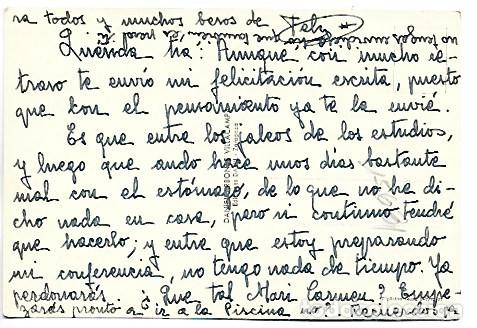 Querida tía: Aunque con mucho re-
traso te envío mi felicitación escrita, puesto
que con el pensamiento ya te la envié.
Es que entre los jaleos de los estudios,
y luego que ando hace unos días bastante
mal con el estómago, de lo que no he di-
cho nada en casa, pero si continuo tendré
que hacerlo; y entre que estoy preparando
mi conferencia, no tengo nada de tiempo. Ya
perdonarás. ¿Que tal Mari Carmen? Empe-
zarás pronto a ir a la Piscina no? Recuerdos pa
ra todos y muchos besos de Fely